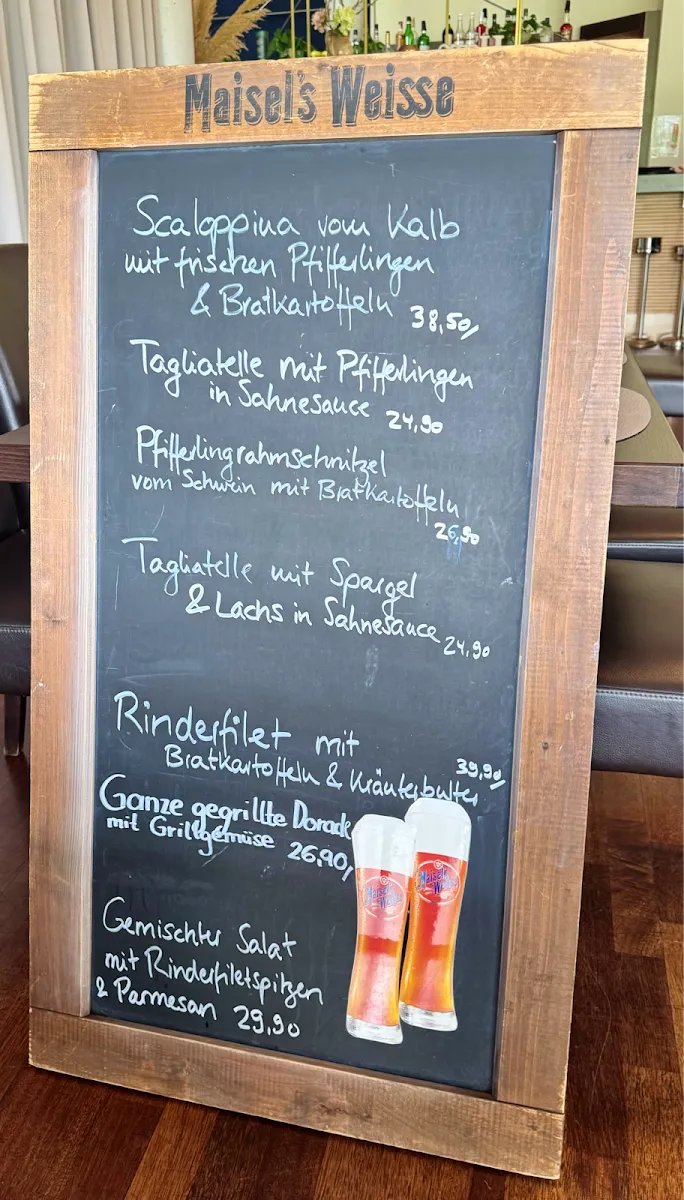 Maisel's Weisse
Scaloppina vom Kalb
mit frischen Pfifferlingen
& Bratkartoffeln 38,50
Tagliatelle mit Pfifferlingen
in Sahnesauce 24,90
Pfifferlingrahmschnitzel
vom Schwein mit Bratkartoffeln
26,90
Tagliatelle mit Spargel
& Lachs in Sahnesauce 24,90
Rinderfilet mit
Bratkartoffeln & Kräuterbutter 39,90
Ganze gegrillte Dorade
mit Grillgemüse 26,90
Gemischter Salat
mit Rinderfiletspitzen
& Parmesan 29,90
Maisel's Weisse
Maisel's Weisse